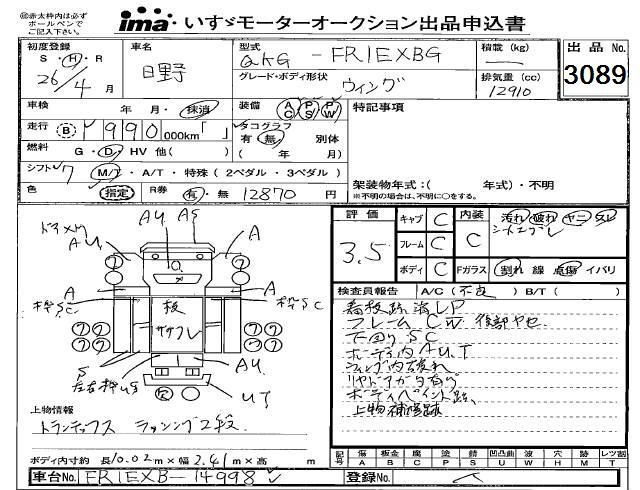 ㊟赤太枠内は必ず
ボールペンで
ご記入下さい。
ima いすゞモーターオークション出品申込書
初度登録 車名 型式 積載 (kg) 出品 No.
S・H・R 日野 QKG - FR1EXBG ー 3089
26年 4月 グレード・ボディ形状 ウィング 排気量 (cc) 12910
車検 年・月・抹消 装備 AC PS PW 特記事項
走行 B 990,000km「 」 タコグラフ 有・無 別体
燃料 G・D・HV 他( ) ( 年 月)
シフト 7 M/T・A/T・特殊 (2ペダル・3ペダル) 架装物年式:( 年式)・不明
色 指定 R券 有・無 12870 円 ※不明の場合は、不明に○をする。
評価 3.5 キャブ C 内装 C 汚れ 破れ ヤニ スレ
フレーム C
ボディ C Fガラス 割れ 線 点傷 イバリ
検査員報告 A/C (不良) B/T ( )
看板跡 済 LP
フレーム C W 後部ヤセ
下回り SC
ボーディ内 A U T
ウィング内破れ
リヤドアガラ有り
ボディペイント跡
上物補修跡
AU AS
A A
A A
SC 枠 SC
板
ササクレ
S AU
左右枠 US
UT
上物情報
トランテックス ラッシング2段
ボディ内寸約 長 10.02 m × 幅 2.41 m × 高 m
記号 傷 A 板金 B 腐 C 塗 P 錆 S 凹凸曲 U 波 W 穴 H 跡 M レツ割 T
車台No. FR1EXB-14998 登録No.